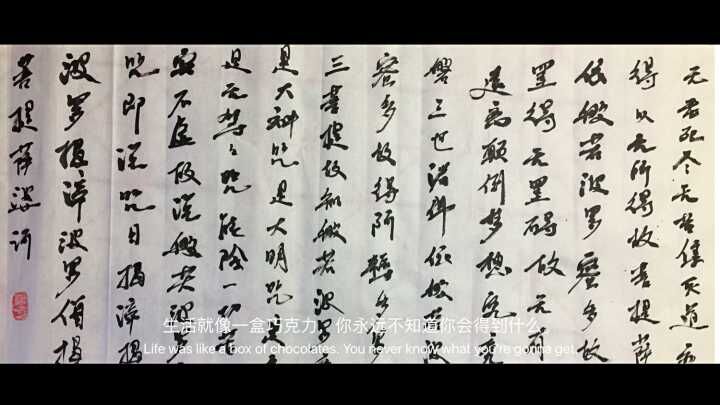 无老死尽无苦集灭道无
得以无所得故菩提萨
依般若波罗蜜多故
无罣碍故无有
远离颠倒梦想究竟
槃三世诸佛依般若波
密多故得阿耨多罗
三菩提故知般若波罗
是大神咒是大明咒是
是无等々咒能除一切苦
实不虚故说般若波
咒即说咒曰揭谛揭
波罗揭谛波罗僧揭
菩提萨婆诃
生活就像一盒巧克力，你永远不知道你会得到什么
Life was like a box of chocolates. You never know what you're gonna get.